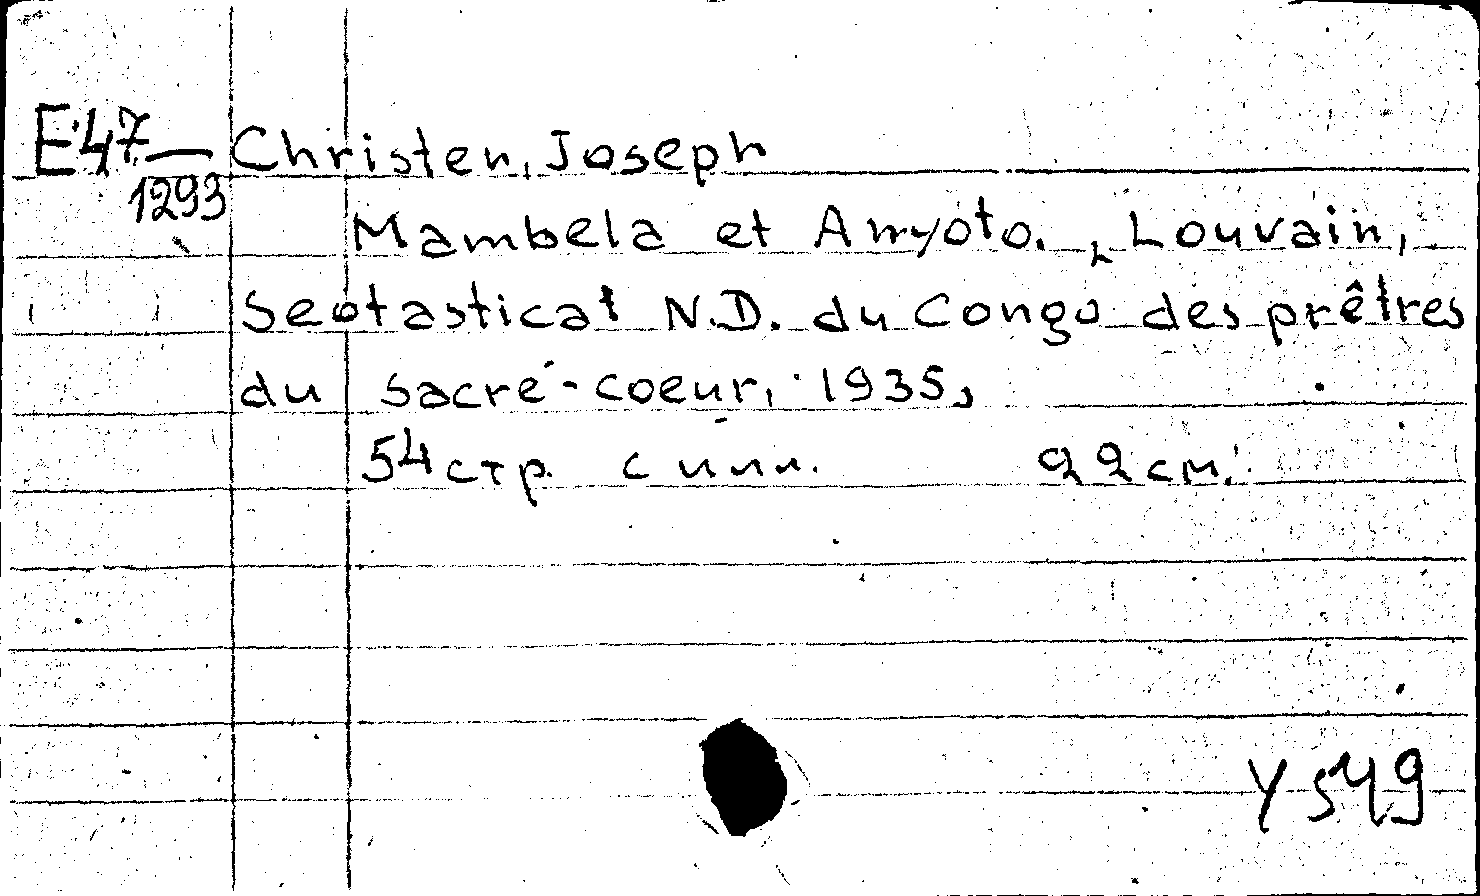 E47— Christen, Joseph
1293
Mambela et Amyoto. , Louvain,
Seotasticat N.D. du Congo des prêtres
du sacré-coeur, 1935,
54 стр. с илл. 22 см.
У 549